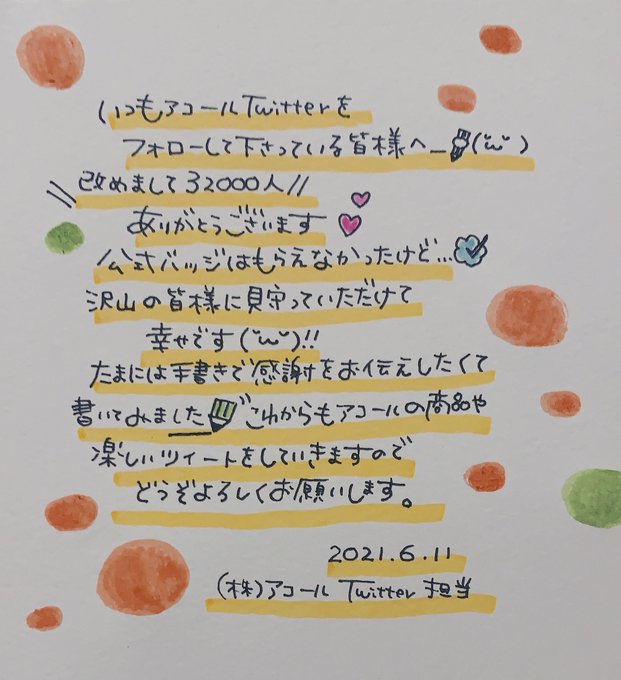 いつもアコールTwitterを
フォローして下さっている皆様へ_(˘ω˘)
\\改めまして32000人//
ありがとうございます
公式バッジはもらえなかったけど...
沢山の皆様に見守っていただけて
幸せです(˘ω˘)!!
たまには手書きで感謝をお伝えしたくて
書いてみました これからもアコールの商品や
楽しいツイートをしていきますので
どうぞよろしくお願いします。
2021.6.11
(株)アコール Twitter 担当